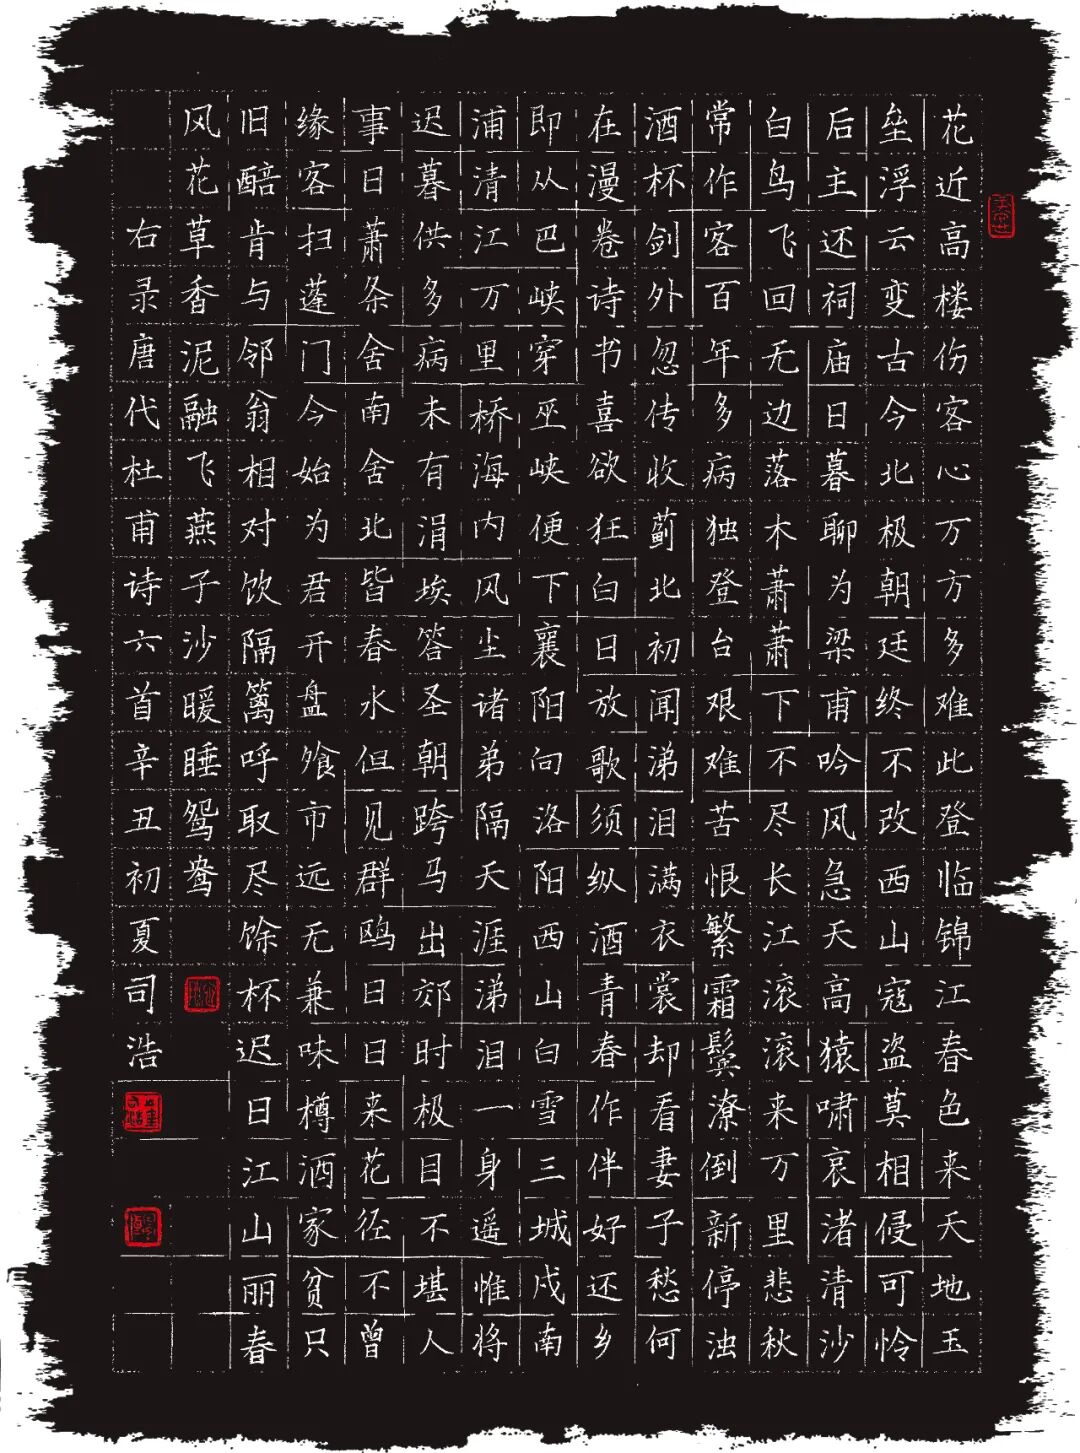 花近高楼伤客心万方多难此登临锦江春色来天地玉
垒浮云变古今北极朝廷终不改西山寇盗莫相侵可怜
后主还祠庙日暮聊为梁甫吟风急天高猿啸哀渚清沙
白鸟飞回无边落木萧萧下不尽长江滚滚来万里悲秋
常作客百年多病独登台艰难苦恨繁霜鬓潦倒新停浊
酒杯剑外忽传收蓟北初闻涕泪满衣裳却看妻子愁何
在漫卷诗书喜欲狂白日放歌须纵酒青春作伴好还乡
即从巴峡穿巫峡便下襄阳向洛阳西山白雪三城戍南
浦清江万里桥海内风尘诸弟隔天涯涕泪一身遥惟将
迟暮供多病未有涓埃答圣朝跨马出郊时极目不堪人
事日萧条舍南舍北皆春水但见群鸥日日来花径不曾
缘客扫蓬门今始为君开盘飧市远无兼味樽酒家贫只
旧醅肯与邻翁相对饮隔篱呼取尽馀杯迟日江山丽春
风花草香泥融飞燕子沙暖睡鸳鸯
右录唐代杜甫诗六首辛丑初夏司浩